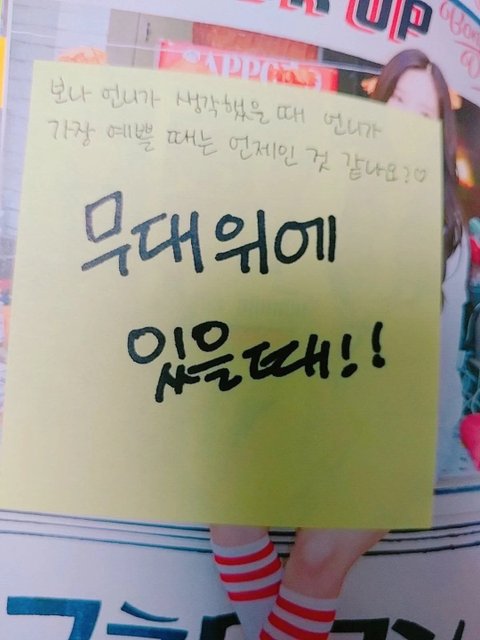 UP
보나 언니가 생각했을 때 언니가
가장 예쁠 때는 언제인 것 같나요?♡
무대위에
있을때!!